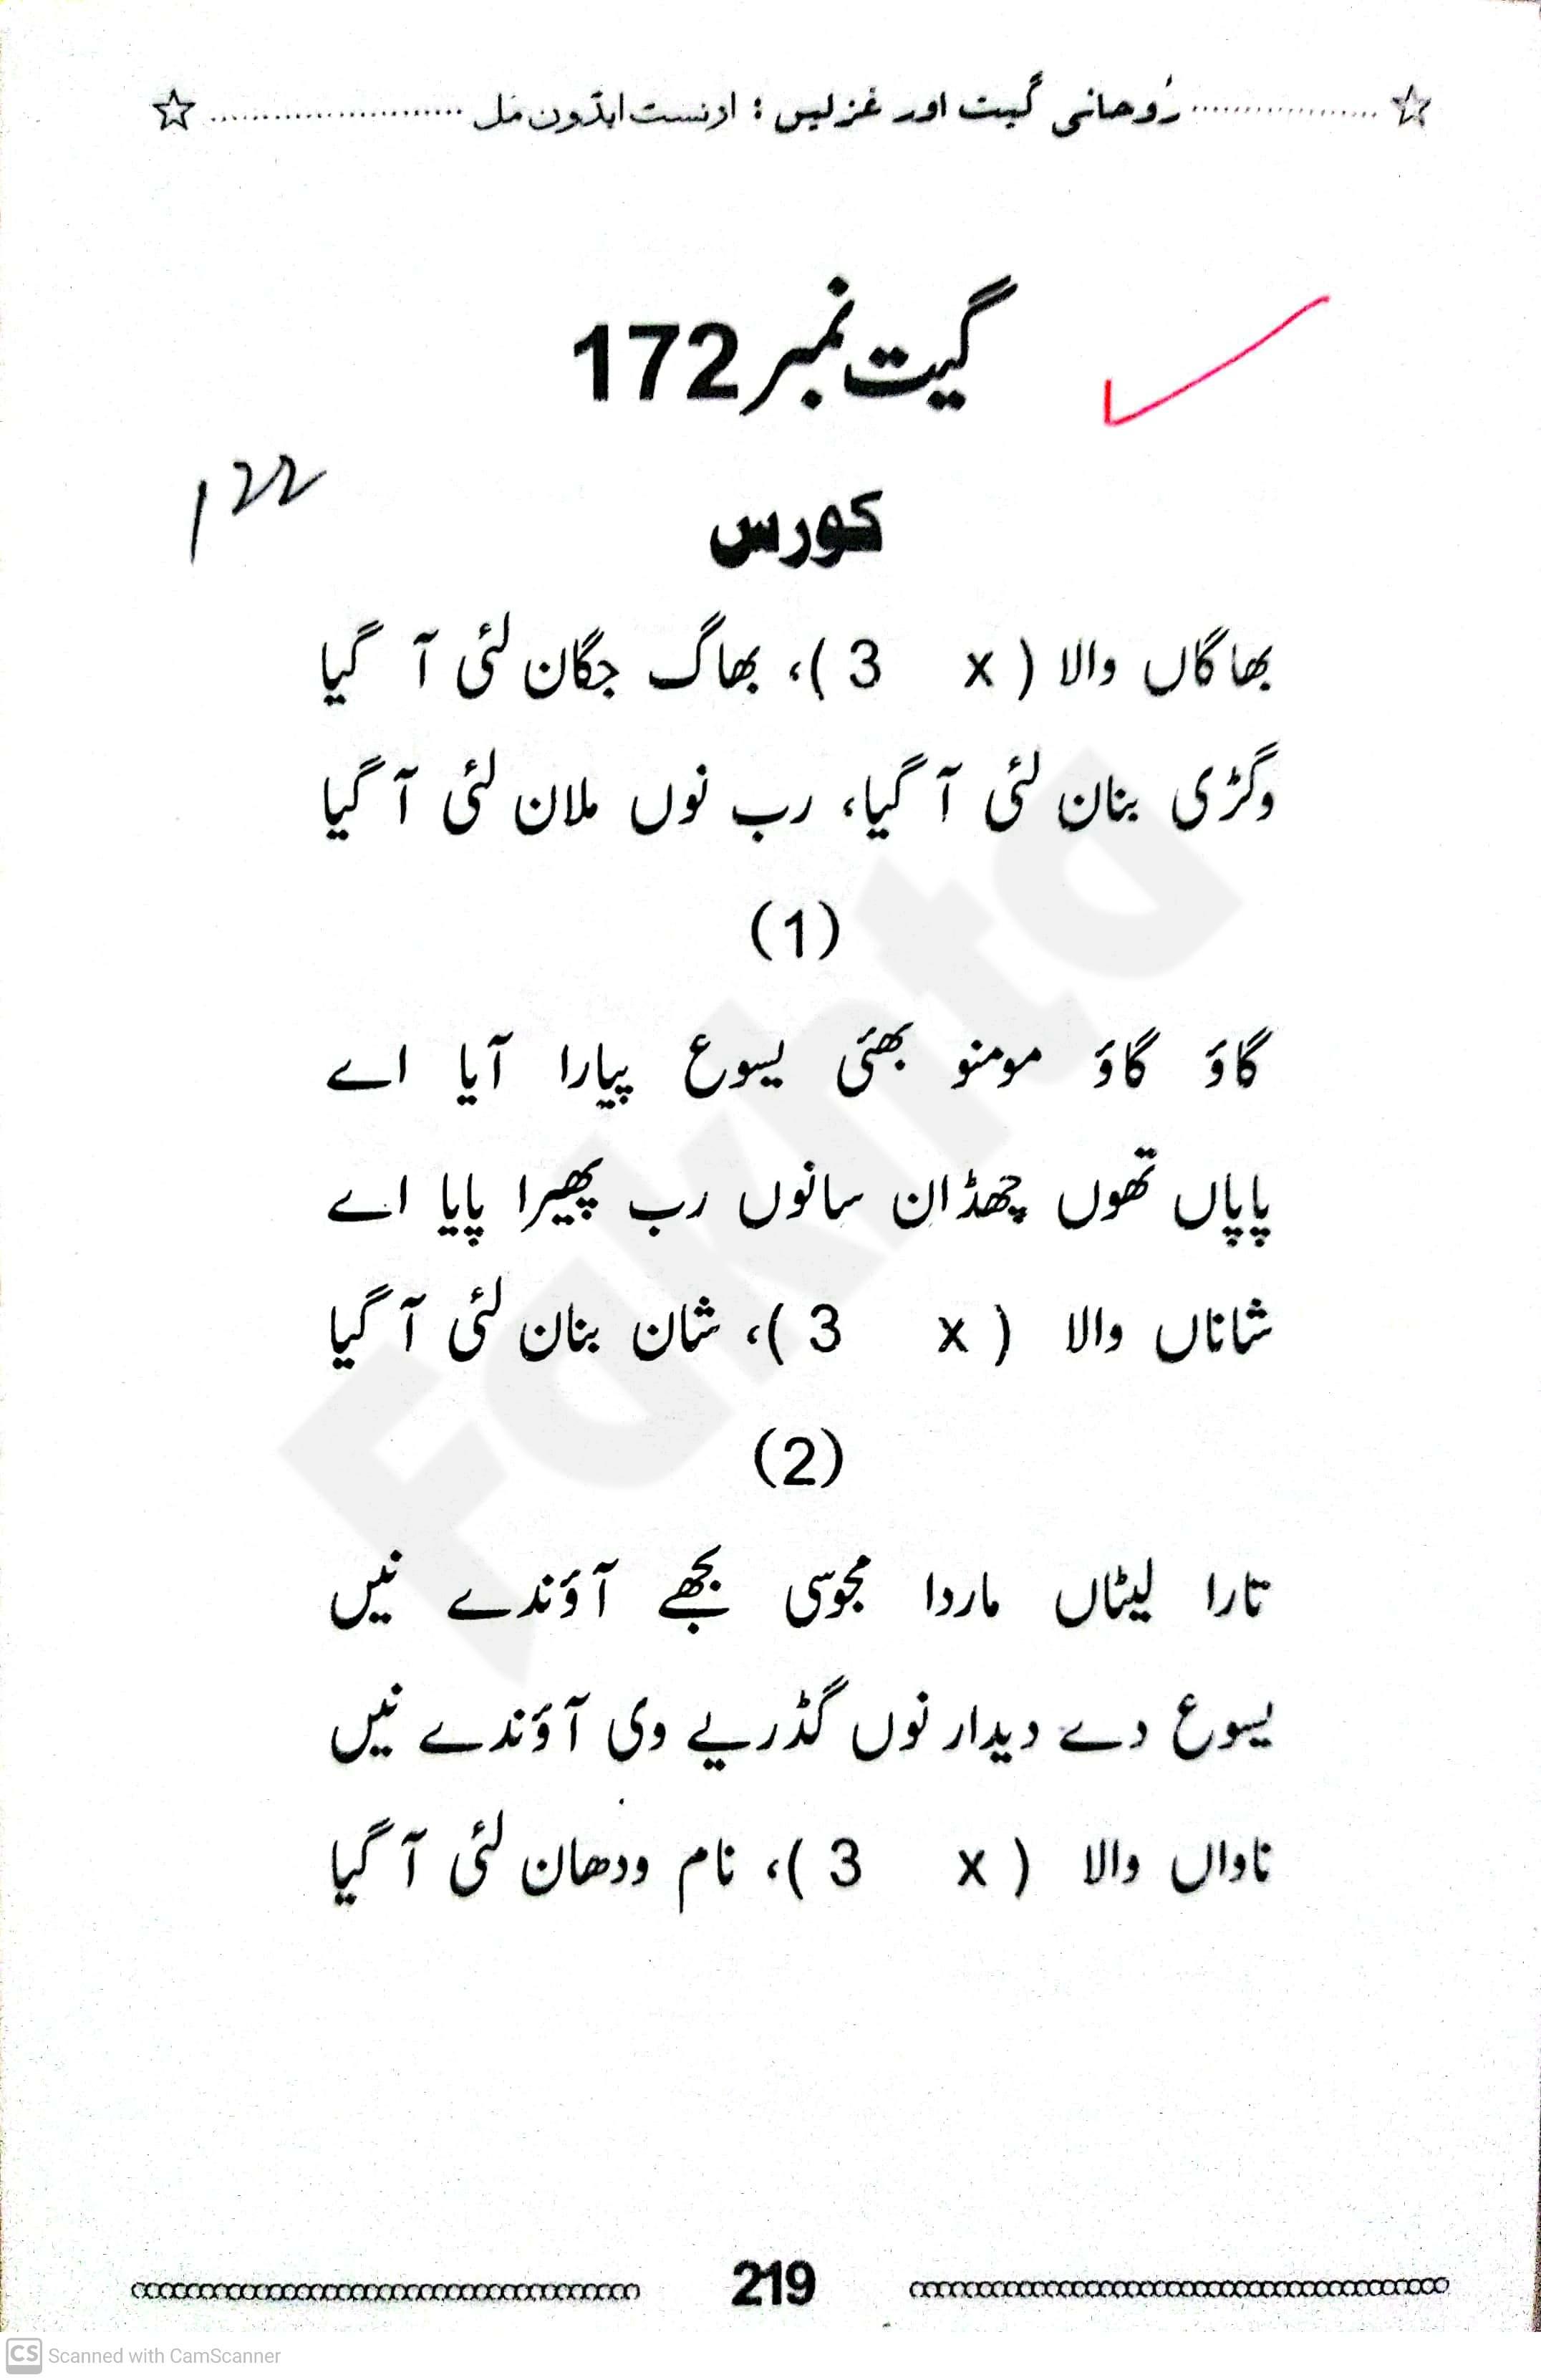 رُوحانی گیت اور غزلیں : ارنسٹ ایڈون مَل
گیت نمبر 172
کورس
بھاگاں والا ( x 3 )، بھاگ جگان لئی آ گیا
وگڑی بنان لئی آ گیا، رب نوں ملان لئی آ گیا
(1)
گاؤ گاؤ مومنو بھئی یسوع پیارا آیا اے
پاپاں تھوں چھڈان سانوں رب پھیرا پایا اے
شاناں والا ( x 3 )، شان بنان لئی آ گیا
(2)
تارا لیٹاں ماردا مجوسی بجھے آؤندے نیں
یسوع دے دیدار نوں گڈریے وی آؤندے نیں
ناواں والا ( x 3 )، نام ودھان لئی آ گیا
Fakhta
219
CS Scanned with CamScanner